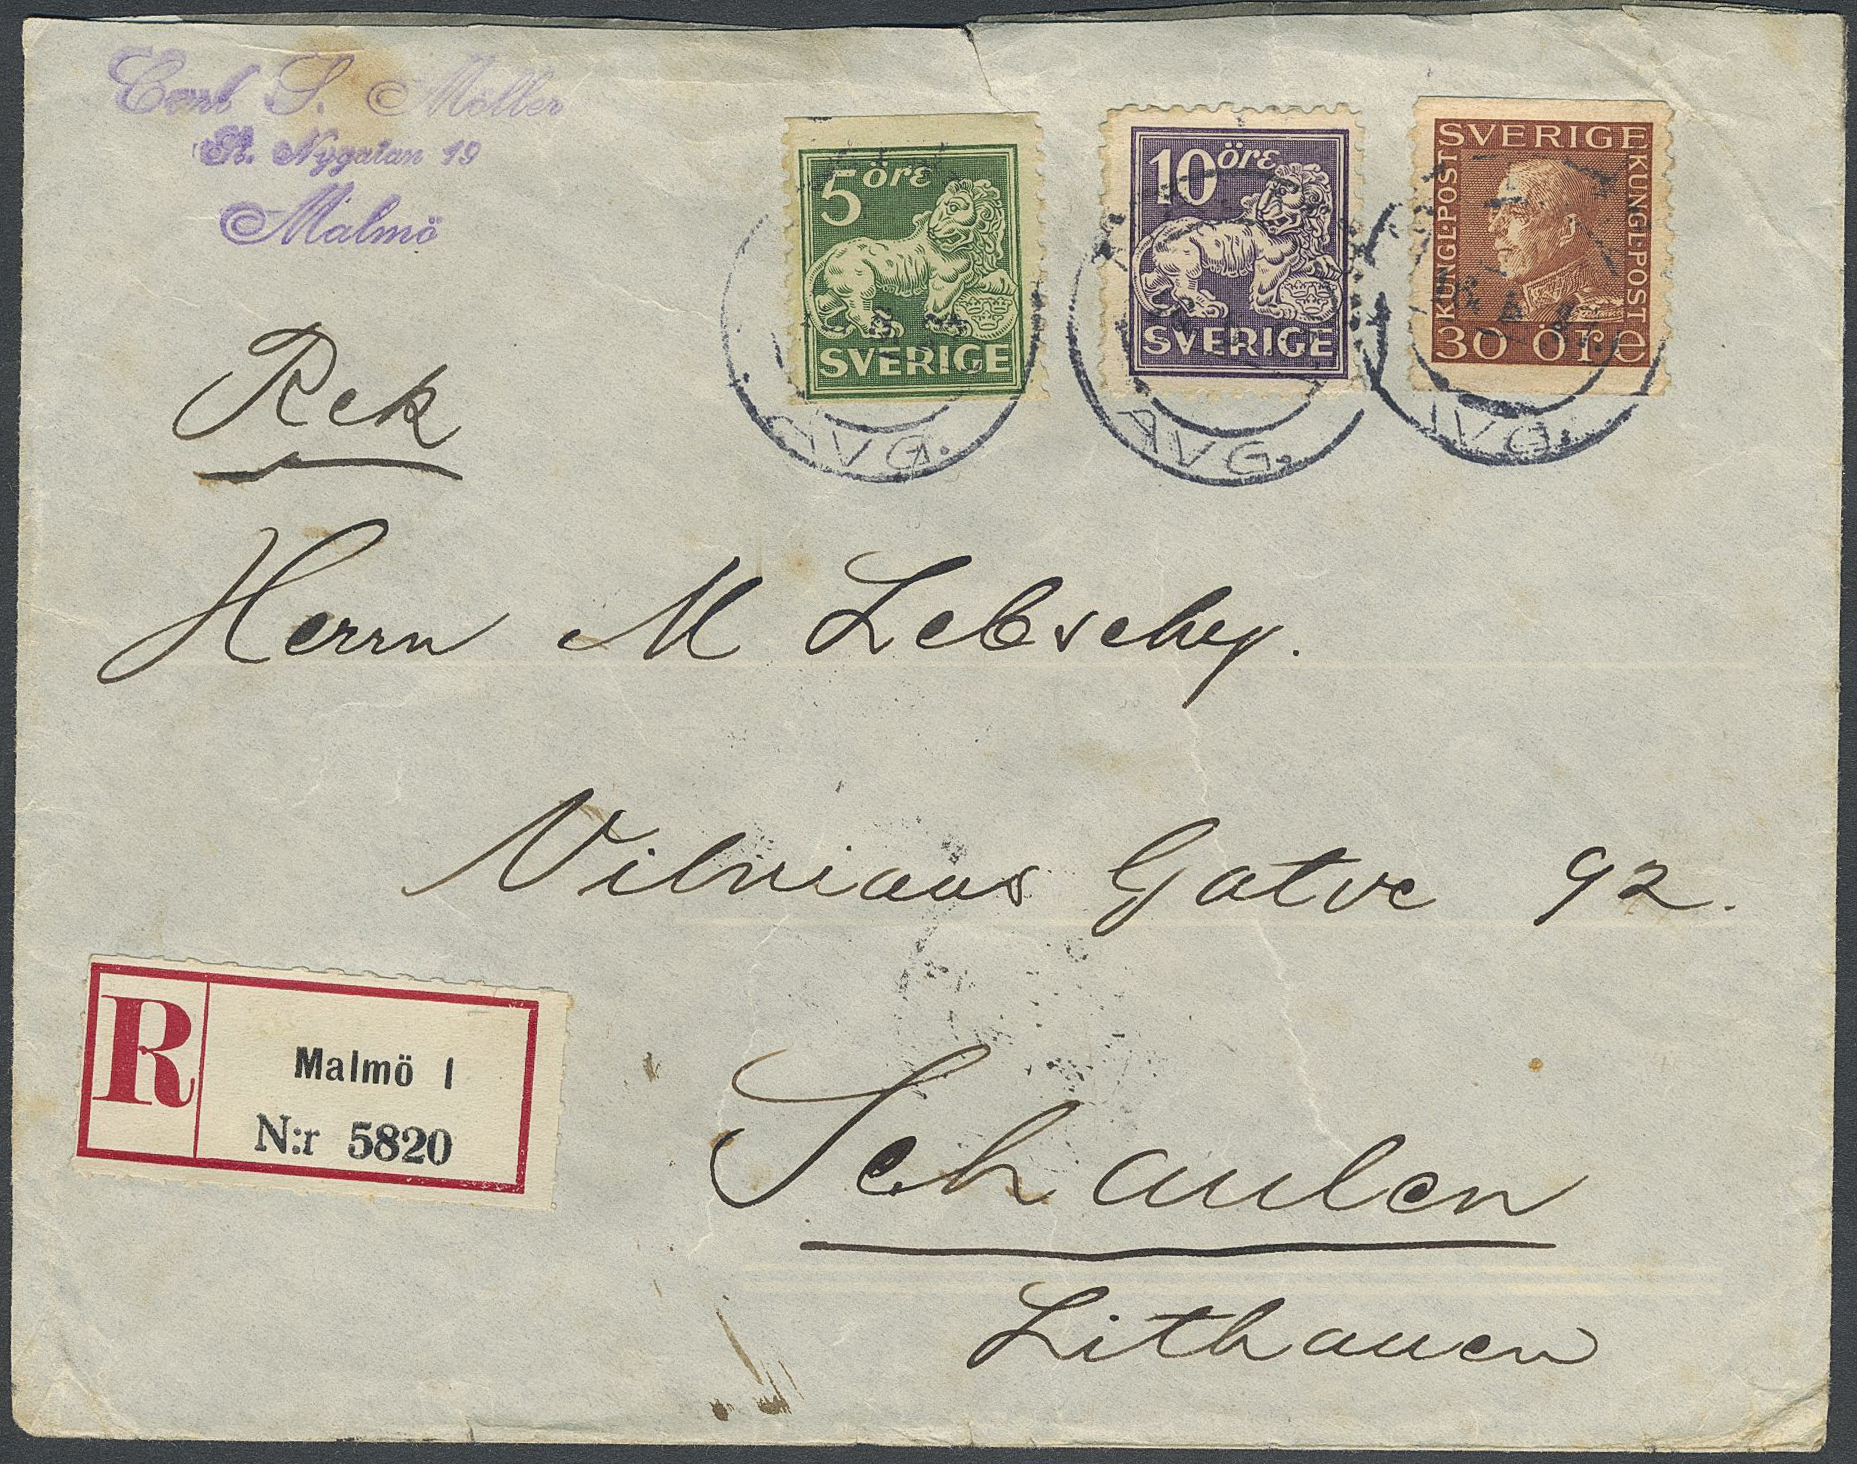 Carl S. Möller
St. Nygatan 19
Malmö
5 öre
SVERIGE
10 öre
SVERIGE
SVERIGE
KUNGL·POST
KUNGL·POST
30 öre
AVG.
AVG.
AVG.
Rek
Herrn M Lebschy.
Vilniaus Gatve 92.
R
Malmö 1
N:r 5820
Schaulen
Lithauen